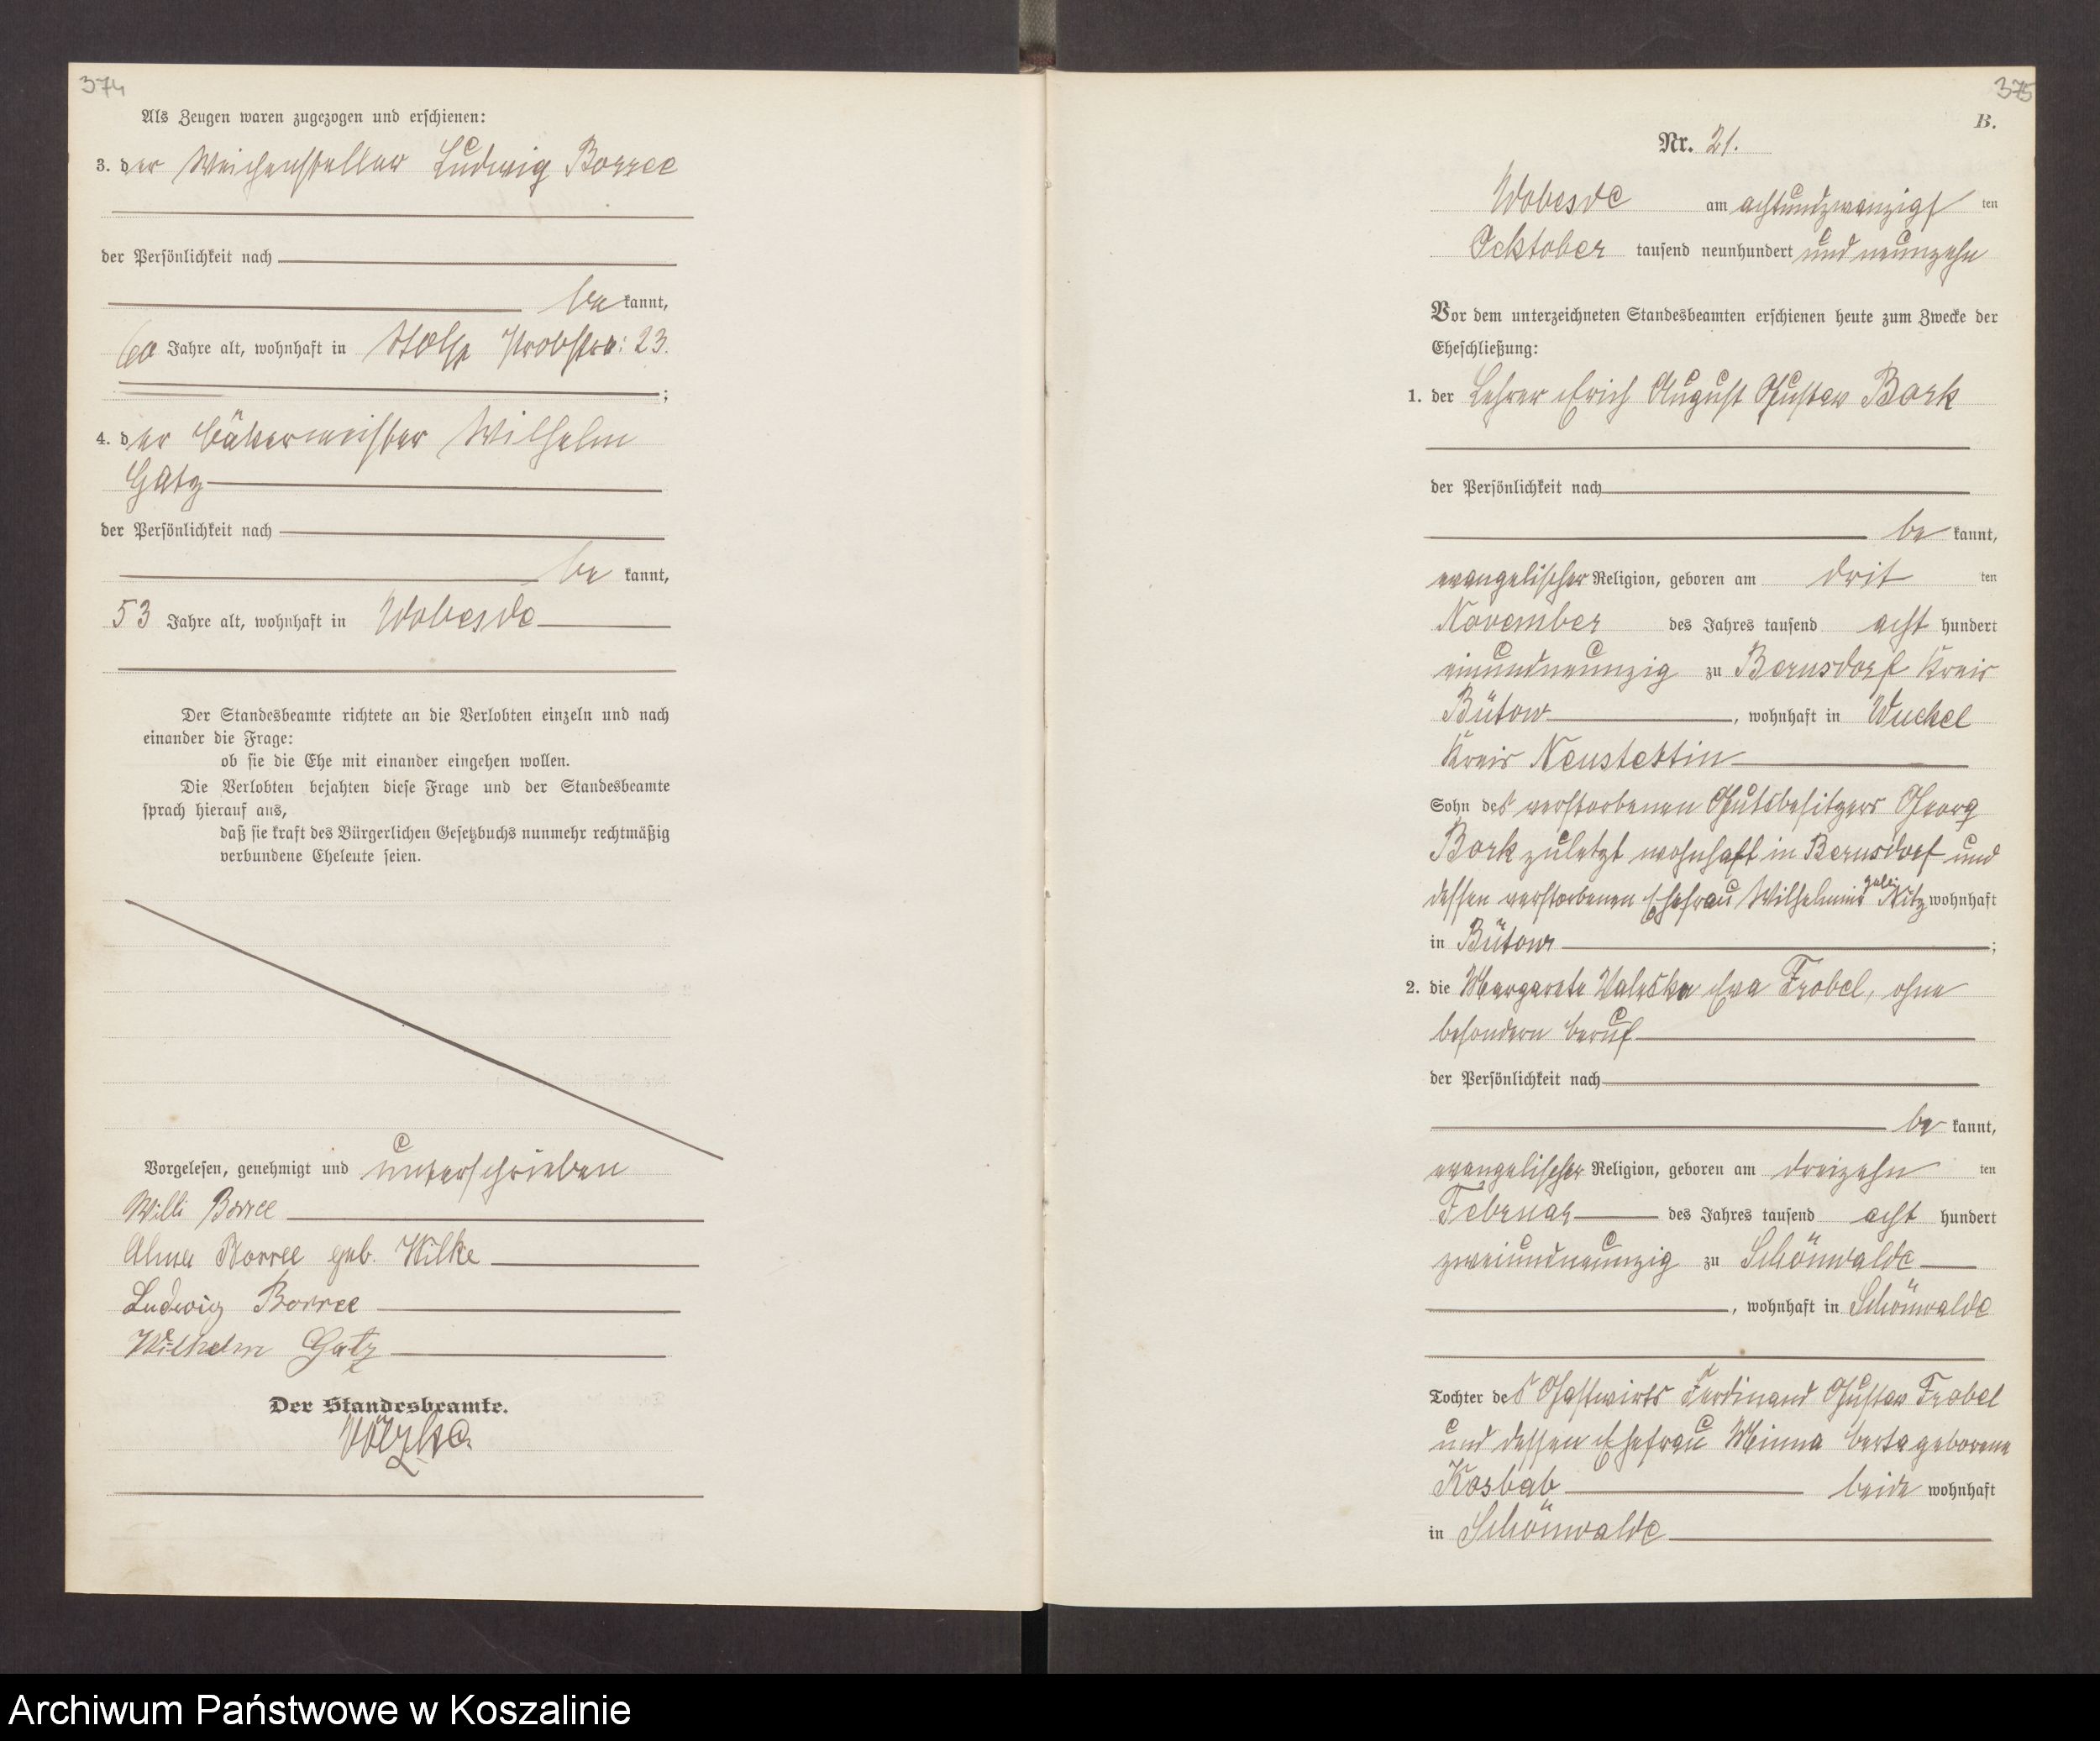 374
Als Zeugen waren zugezogen und erschienen:
3. der Weichensteller Ludwig Borree
der Persönlichkeit nach
be kannt,
60 Jahre alt, wohnhaft in Stolp Probstr: 23.
;
4. der Bäkermeister Wilhelm
Gatz
der Persönlichkeit nach
be kannt,
53 Jahre alt, wohnhaft in Wobesde
Der Standesbeamte richtete an die Verlobten einzeln und nach
einander die Frage:
ob sie die Ehe mit einander eingehen wollen.
Die Verlobten bejahten diese Frage und der Standesbeamte
sprach hierauf aus,
daß sie kraft des Bürgerlichen Gesetzbuchs nunmehr rechtmäßig
verbundene Eheleute seien.
Vorgelesen, genehmigt und unterschrieben
Willi Borree
Alma Borree geb. Wilke
Ludwig Borree
Wilhelm Gatz
Der Standesbeamte.
375
B.
Nr. 21.
Wobesde am achtundzwanzigs ten
Ocktober tausend neunhundert und neunzehn
Vor dem unterzeichneten Standesbeamten erschienen heute zum Zwecke der
Eheschließung:
1. der Lehrer Erich August Gustav Bork
der Persönlichkeit nach
be kannt,
evangelischer Religion, geboren am drit ten
November des Jahres tausend acht hundert
einundneunzig zu Bernsdorf Kreis
Bütow, wohnhaft in Wuckel
Kreis Neustettin
Sohn des verstorbenen Gutsbesitzers Georg
Bork zuletzt wohnhaft in Bernsdorf und
dessen verstorbenen Ehefrau Wilhelmine geb: Nitz wohnhaft
in Bütow ;
2. die Margarete Valeska Eva Frobel, ohne
besondern Beruf
der Persönlichkeit nach
be kannt,
evangelischer Religion, geboren am dreizehn ten
Februar des Jahres tausend acht hundert
zweiundneunzig zu Schönwalde
, wohnhaft in Schönwalde
Tochter des Gastwirts Ferdinand Gustav Frobel
und dessen Ehefrau Minna Berta geborene
Kosbab beide wohnhaft
in Schönwalde
Archiwum Państwowe w Koszalinie